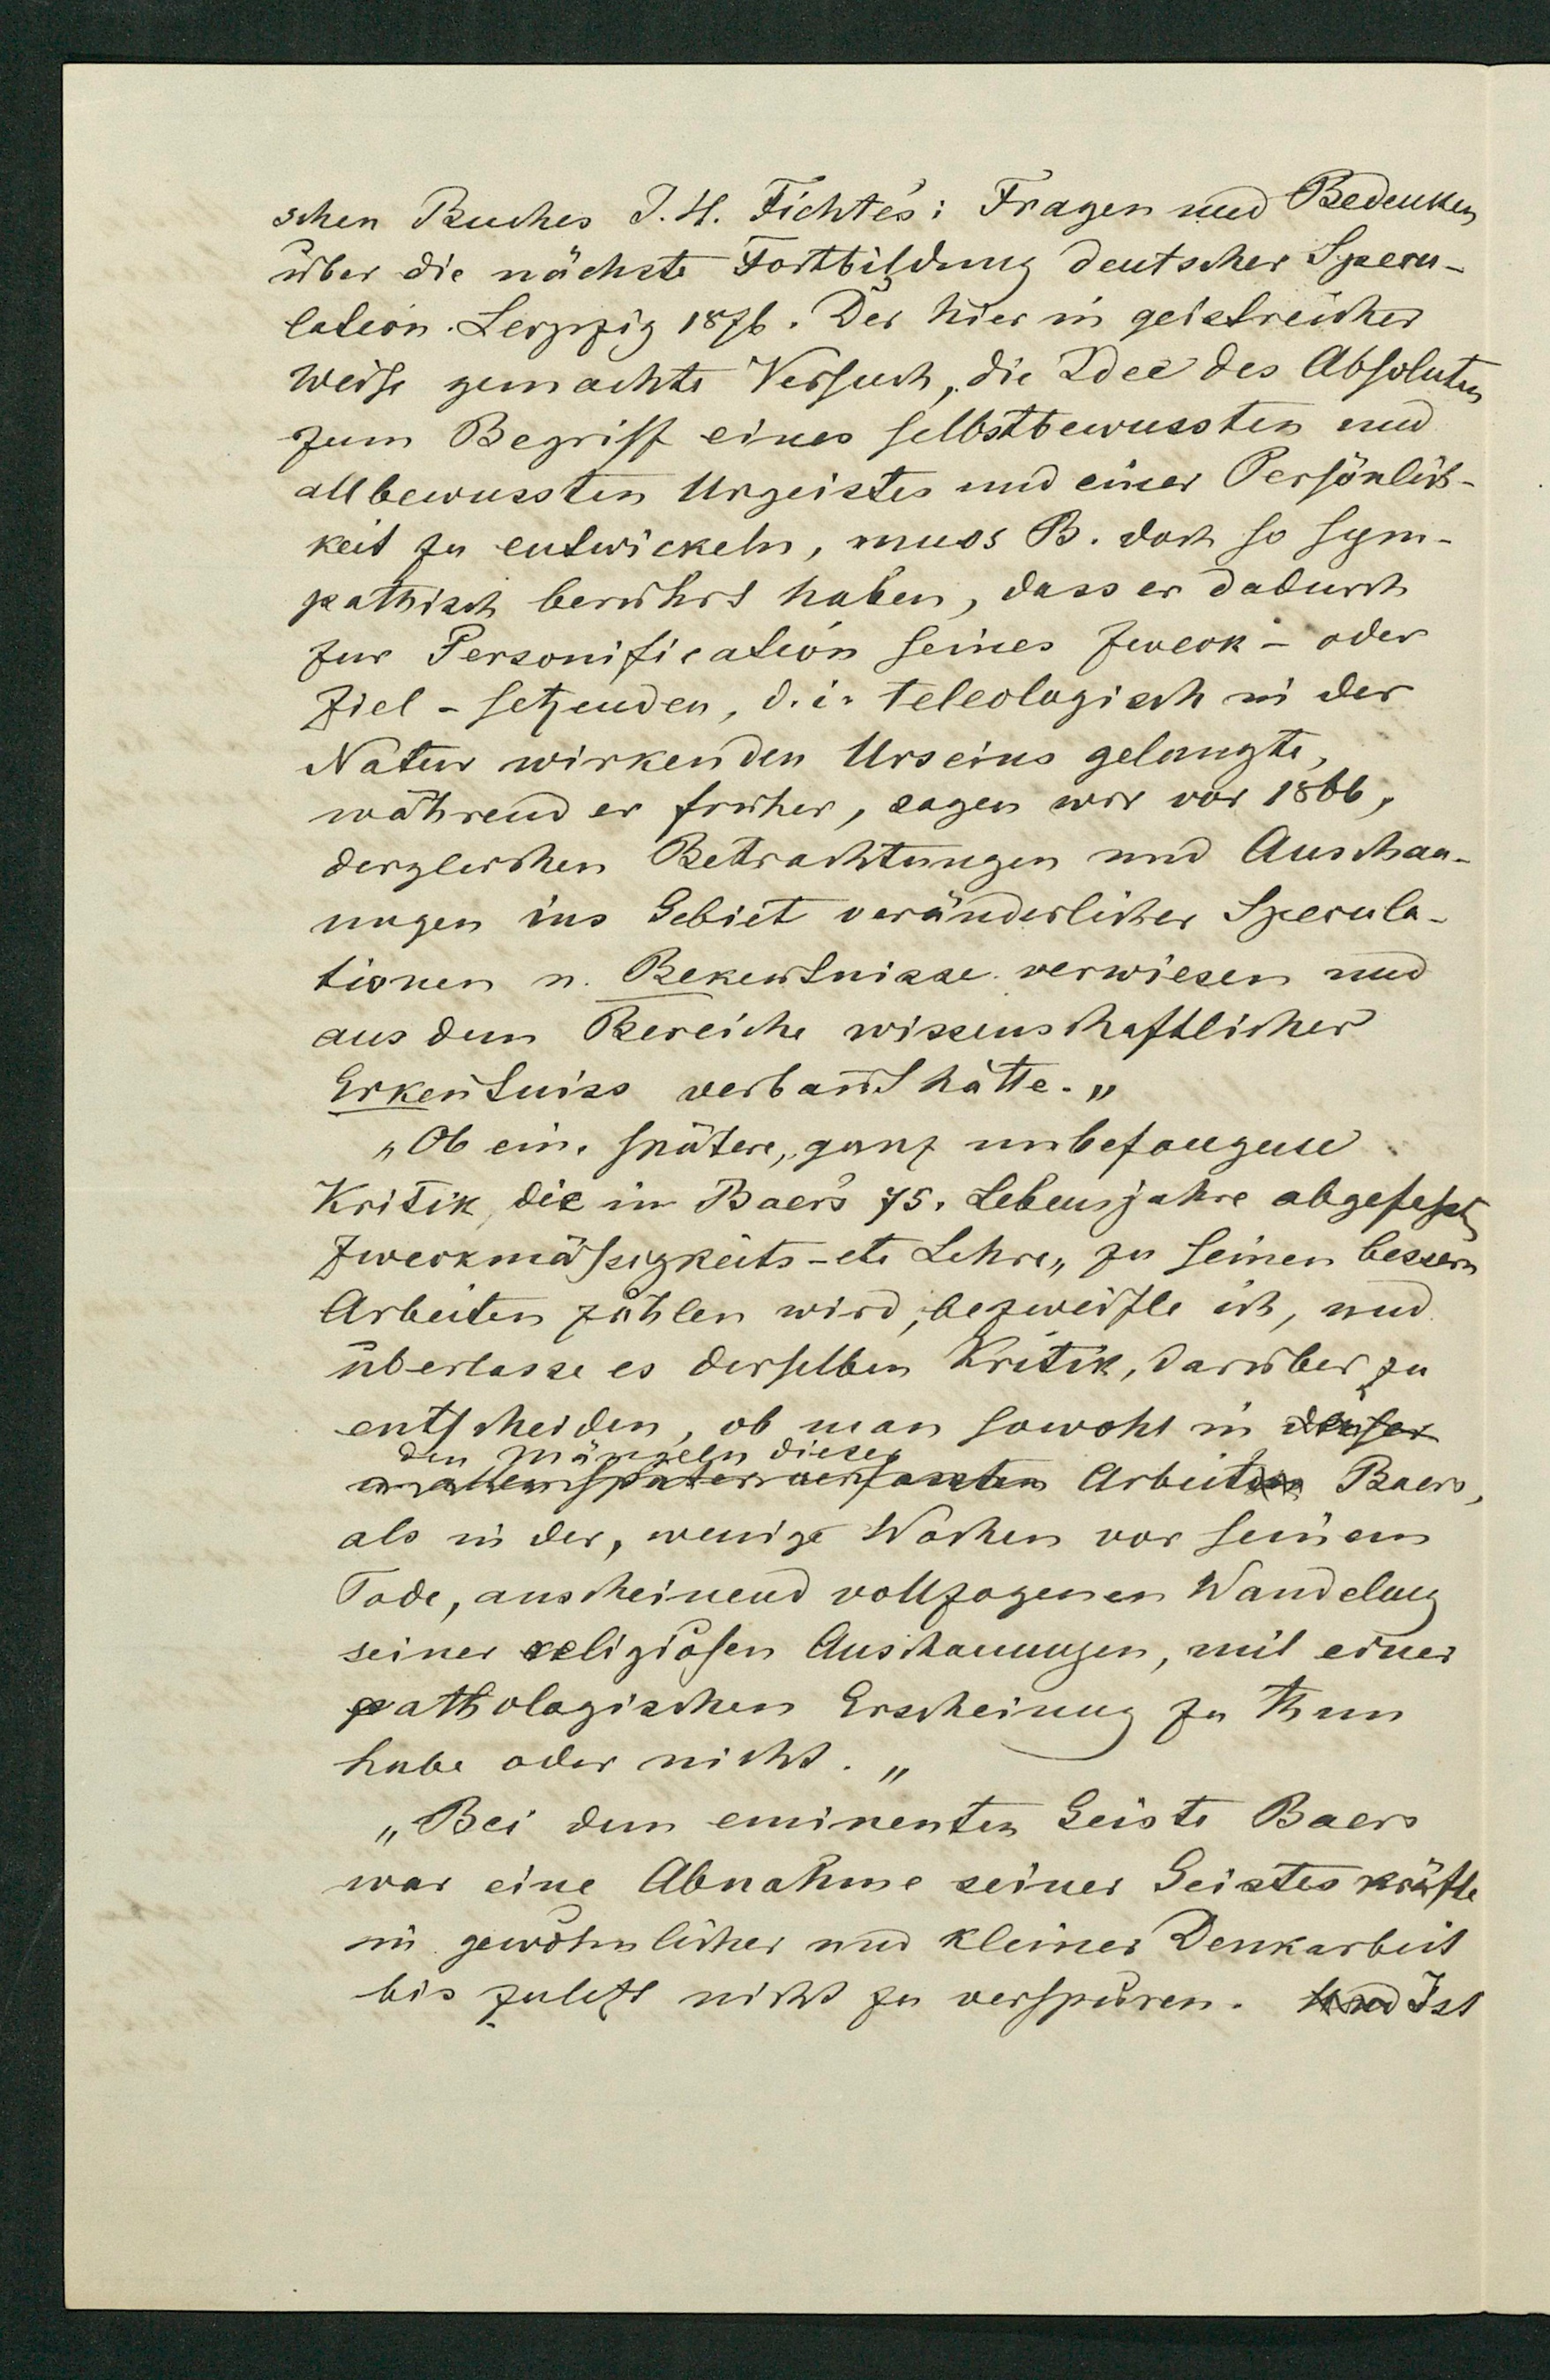 schen Buches I. H. Fichte's: Fragen und Bedenken
über die nächste Fortbildung deutscher Specu-
lation. Leipzig 1876. Der hier in geistreicher
Weise gemachte Versuch, die Idee des Absoluten
zum Begriff eines selbstbewussten und
allbewussten Urgeistes und einer Persönlich-
keit zu entwickeln, muss B. doch so sym-
pathisch berührt haben, dass er dadurch
zur Personification seines Zweck- oder
Ziel-setzenden, d. i. teleologisch in der
Natur wirkenden Urseins gelangte,
während er früher, sagen wir vor 1866,
dergleichen Betrachtungen und Anschau-
ungen ins Gebiet veränderlicher Specula-
tionen u. Bekentnisse verwiesen und
aus dem Bereiche wissenschaftlicher
Erkentniss verbant hätte."
„Ob eine spätere, ganz unbefangene
Kritik, die in Baer's 75. Lebensjahre abgefasste
Zweckmässigkeits-etc Lehre„ zu seinen bessern
Arbeiten zählen wird, bezweifle ich, und
überlasse es derselben Kritik, darüber zu
entscheiden, ob man sowohl in dieser
den Mängeln dieser
später verfassten Arbeit Baers,
als in der, wenige Wochen vor seinem
Tode, anscheinend vollzogenen Wandelung
seiner religiösen Anschauungen, mit einer
pathologischen Erscheinung zu thun
habe oder nicht."
„Bei dem eminenten Geiste Baers
war eine Abnahme seiner Geisteskräfte
in gewöhnlicher und kleiner Denkarbeit
bis zuletzt nicht zu verspüren. Und Ist